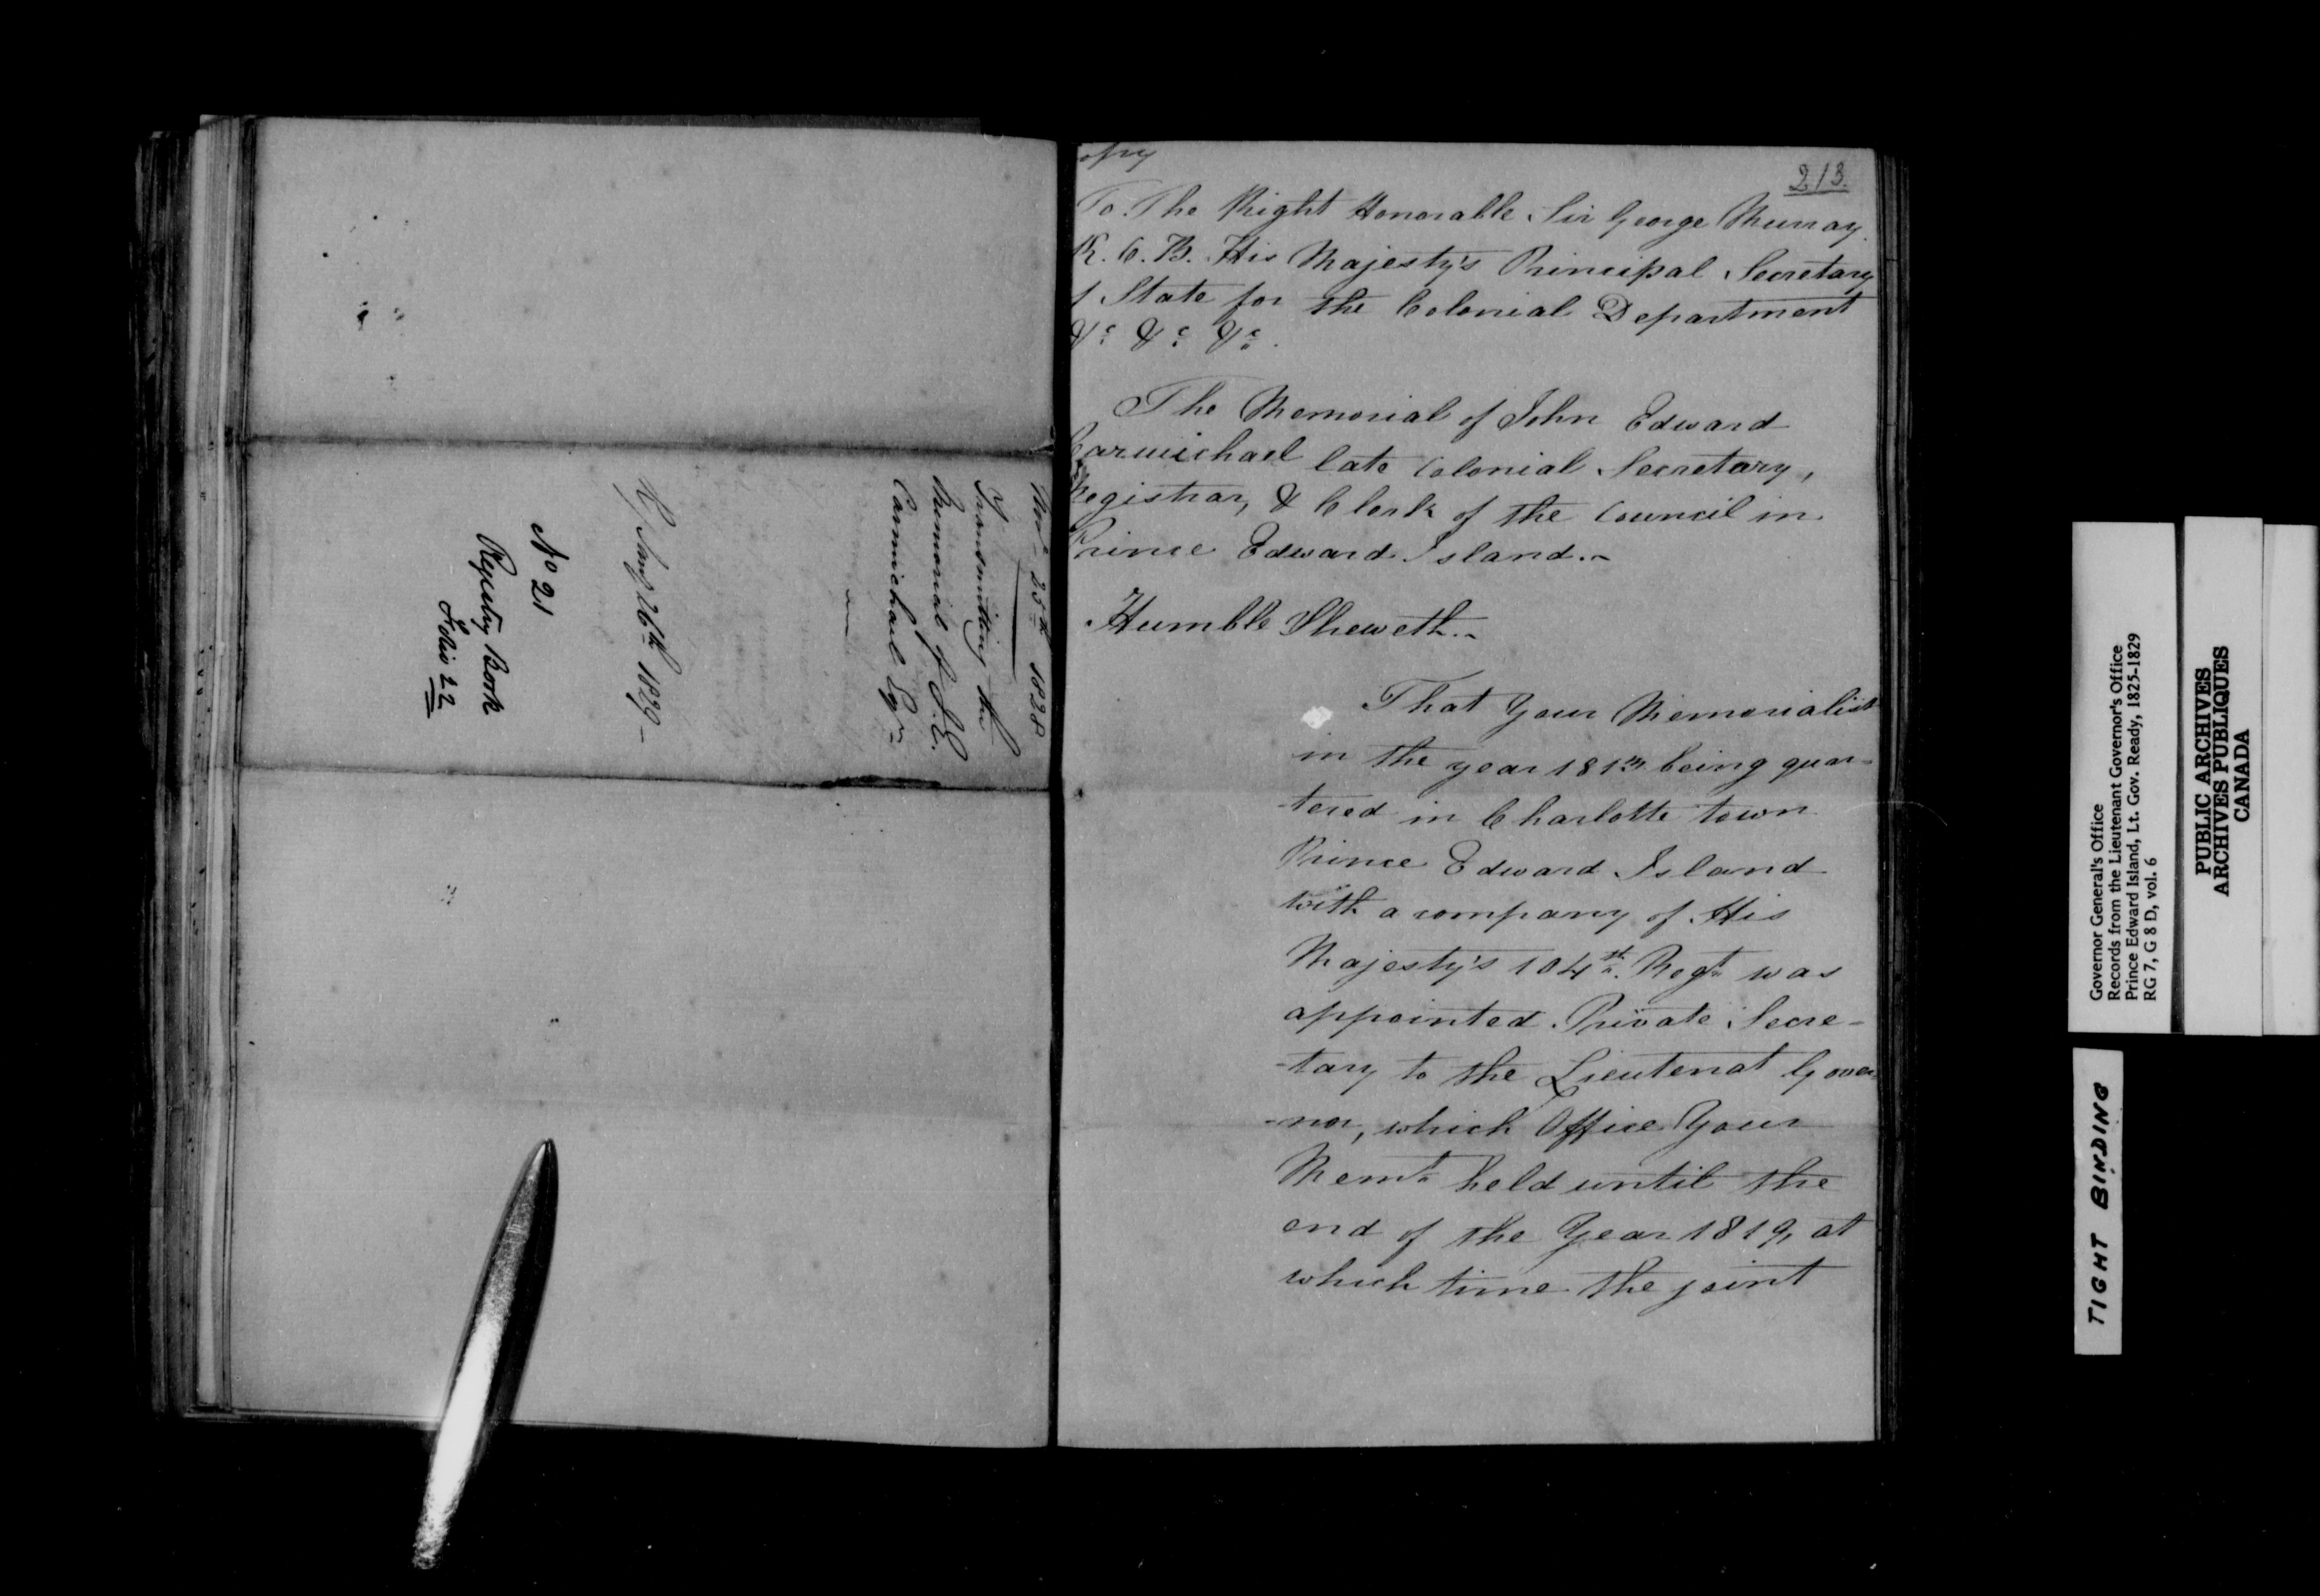 Novr 25th 1828
Transmitting the
Memorial of J. E.
Carmichael Esqr
Rd Jany 26th 1829
No 21
Registry Book
Folio 22
opy
213.
To The Right Honorable Sir George Murray.
K. C. B. His Majesty's Principal Secretary
f State for the Colonial Department
&c &c &c.
The Memorial of John Edward
Carmichael late Colonial Secretary,
Registrar, & Clerk of the Council in
Prince Edward Island.~
Humble Sheweth.~
That Your Memorialist
in the year 1813 being quar-
-tered in Charlotte town
Prince Edward Island
with a company of His
Majesty's 104th Regt was
appointed Private Secre-
-tary to the Lieutenat Gover-
-nor, which Office Your
Memt held until the
end of the Year 1819, at
which time the joint
Governor General's Office
Records from the Lieutenant Governor's Office
Prince Edward Island, Lt. Gov. Ready, 1825-1829
RG 7, G 8 D, vol. 6
PUBLIC ARCHIVES
ARCHIVES PUBLIQUES
CANADA
TIGHT BINDING